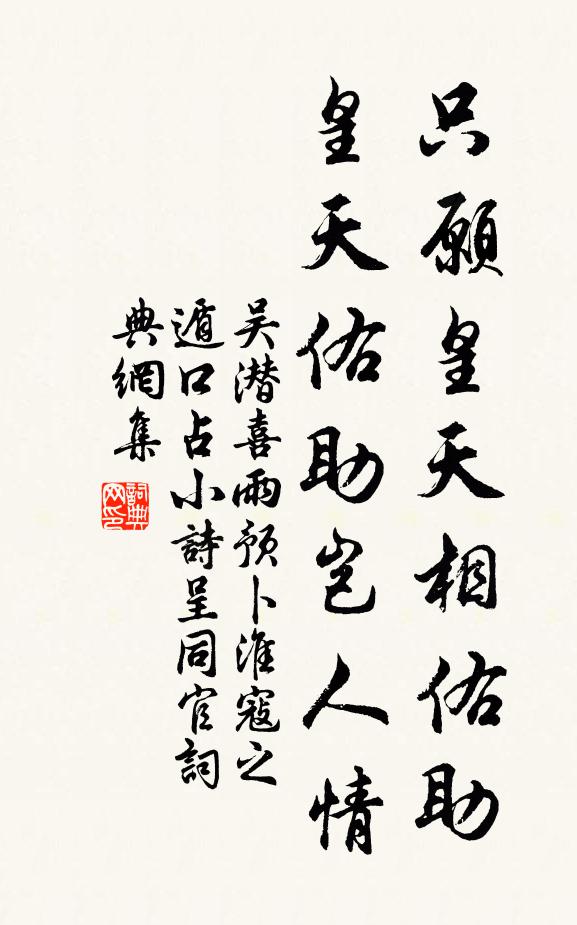 只願皇天相佑助
皇天佑助豈人情
吴潜喜雨預卜淮寇之
遁口占小詩呈同官詞
典網集
詞典
网印